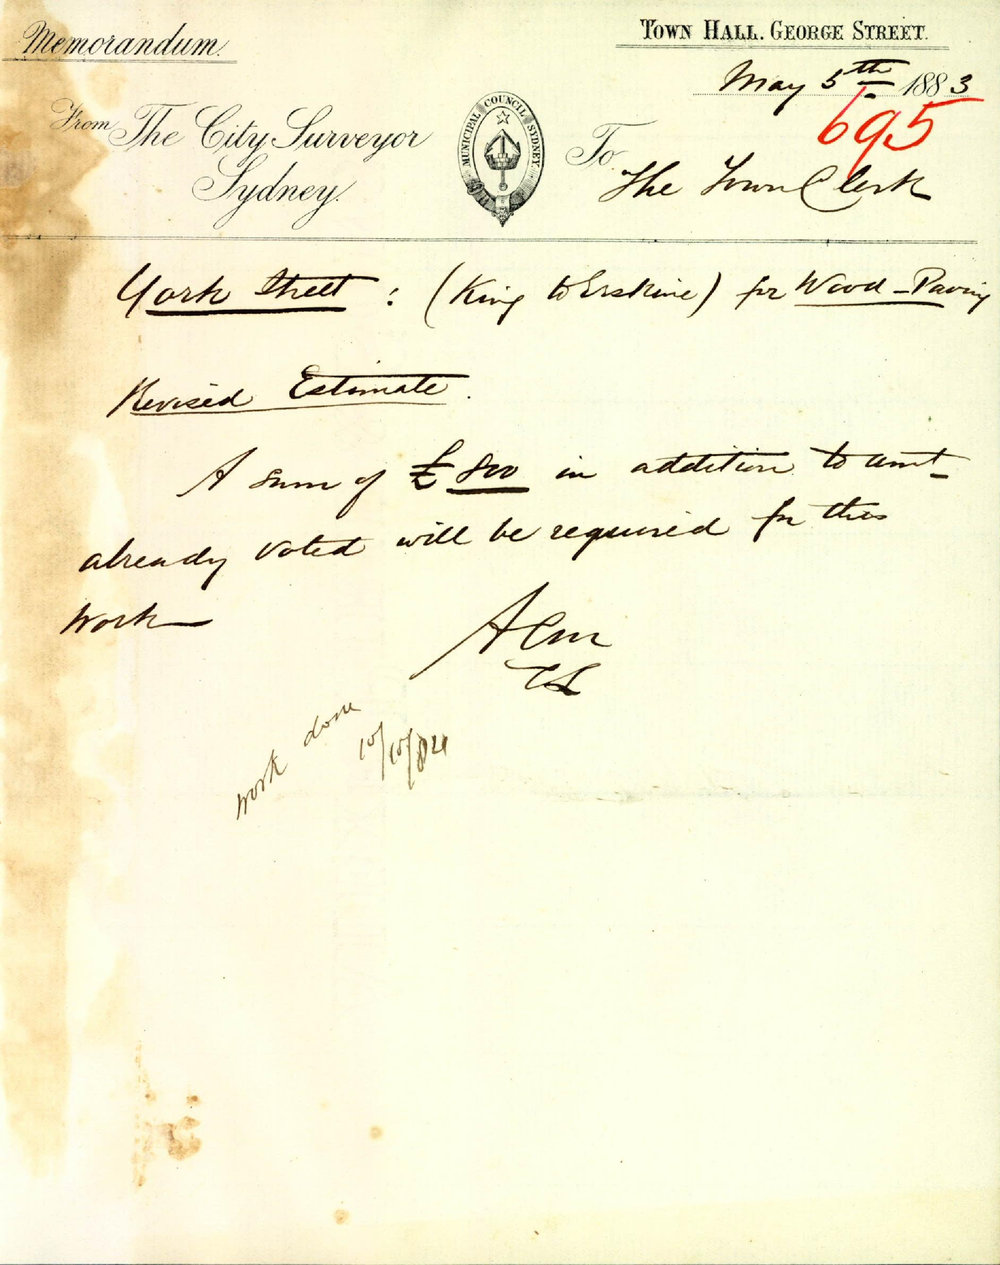 Memorandum.
TOWN HALL. GEORGE STREET.
May 5th 1883
695
From The City Surveyor
Sydney.
MUNICIPAL COUNCIL SYDNEY
To
The Town Clerk
York Street : (King to Erskine) for Wood-Paving
Revised Estimate.
A sum of £800 in addition to amt
already voted will be required for this
work
ACM
CS
work done
10/10/84